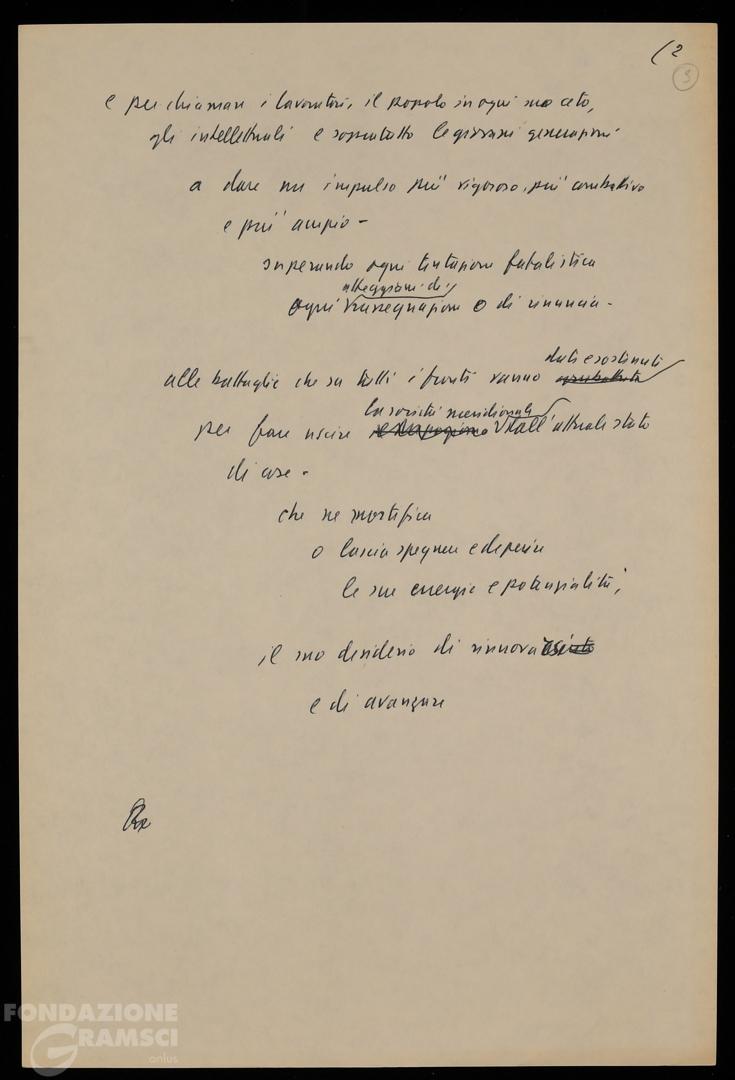 (2
3
e per chiamare i lavoratori, il popolo in ogni suo ceto,
gli intellettuali e soprattutto le giovani generazioni
a dare un impulso più vigoroso, più combattivo
e più ampio –
superando ogni tentazione fatalistica
atteggiamenti di
ogni rassegnazione o di rinuncia –
dati e sostenuti
alle battaglie che su tutti i fronti vanno
la società meridionale
per fare uscire dall'attuale stato
di cose –
che ne mortifica
o lascia spegnere e deperire
le sue energie e potenzialità,
il suo desiderio di rinnovarsi
e di avanzare
FONDAZIONE
GRAMSCI
onlus